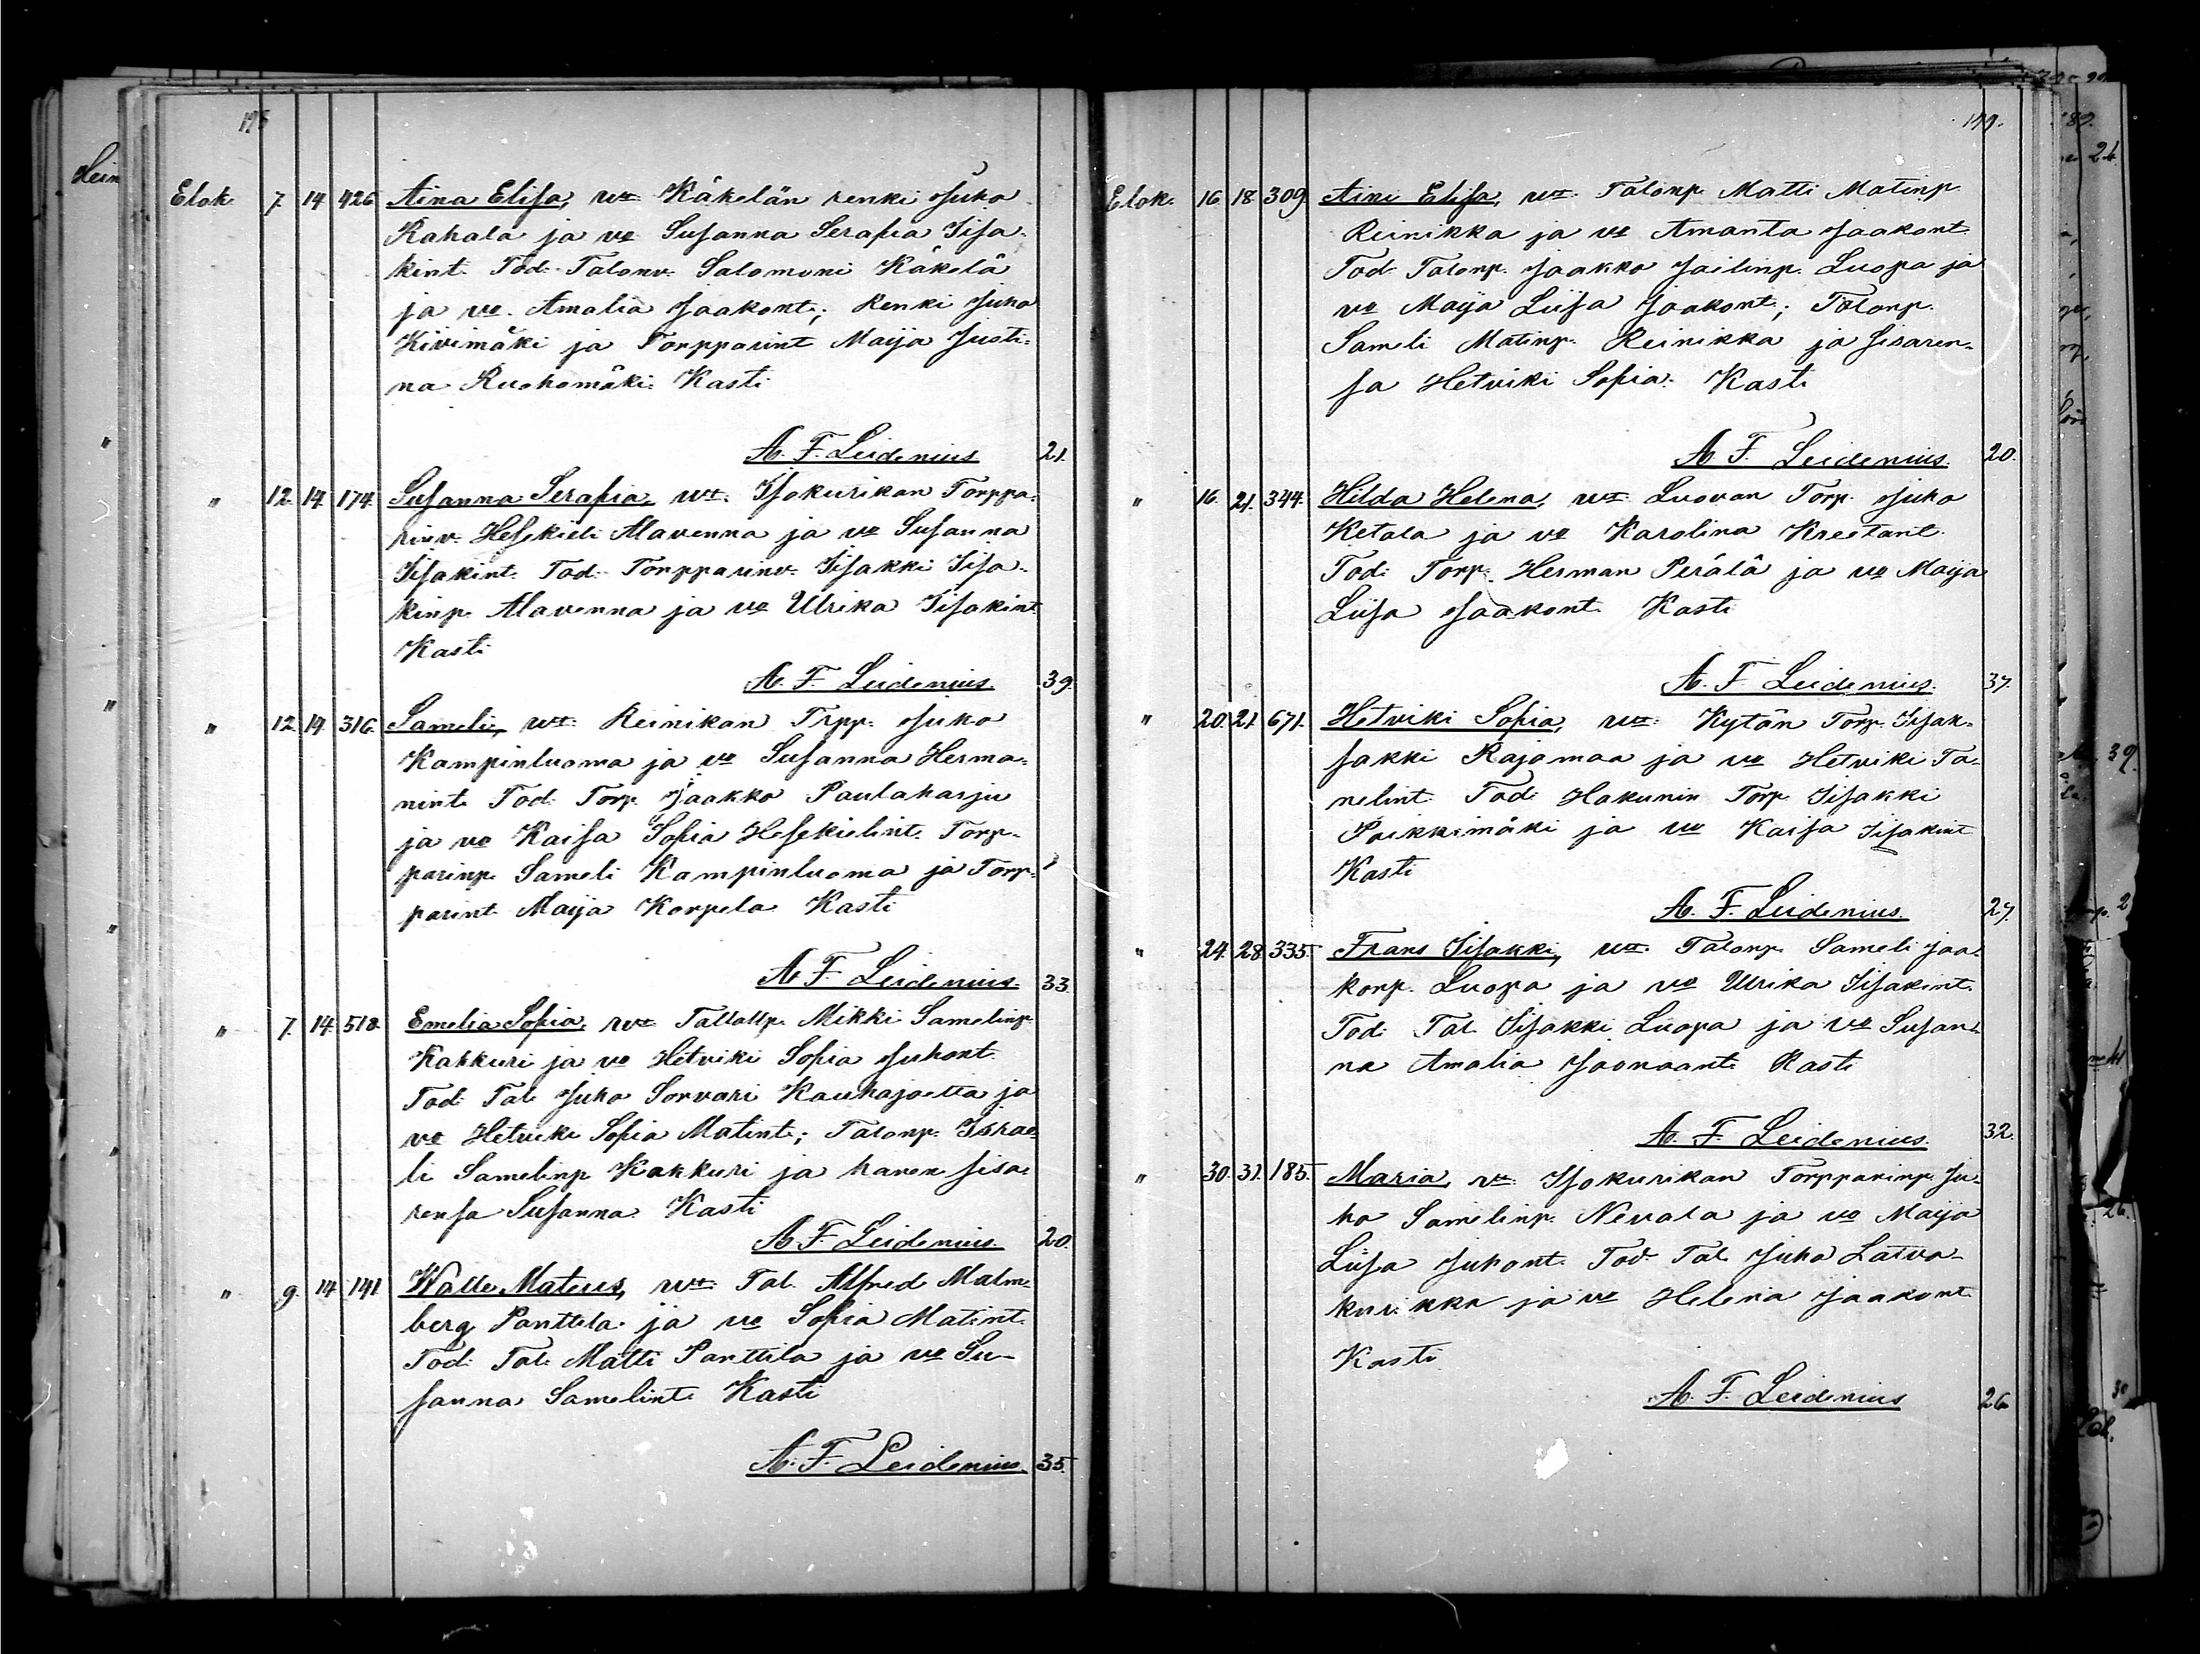 Elok. 7. 14. 426. Aina Elisa, vt. Käkelän renki Juho
Rahala ja vo Susanna Serafia Iisa-
kint. Tod. Talonv. Salomoni Käkelä
ja vo. Amalia Jaakont.; Renki Juho
Kivimäki ja Torpparint Maija Justi-
na Ruohomäki. Kasti
A. F. Leidenius. 21.
" 12. 14. 174. Susanna Serafia, vt. Isokurikan Torppa-
rinv. Hesekieli Alavenna ja vo Susanna
Iisakint. Tod. Torpparinv. Iisakki Iisa-
kinp. Alavenna ja vo Ulrika Iisakint
Kasti
A. F. Leidenius. 39.
" 12. 14. 316. Sameli, vt. Reinikan Trpp. Juho
Kampinluoma ja vo Susanna Herma-
nint. Tod. Torp. Jaakko Paulaharju
ja vo Kaisa Sofia Hesekielint. Torp-
parinp. Sameli Kampinluoma ja Torp-
parint Maija Korpela Kasti
A. F. Leidenius. 33.
" 7. 14. 518. Emelia Sofia, vt. Tallallp. Mikki Samelinp.
Kakkuri ja vo Hetviki Sofia Juhont.
Tod. Tal. Juho Sorvari Kauhajoelta ja
vo Hetviki Sofia Matint.; Talonp. Israe-
li Samelinp Kakkuri ja hanen sisa-
rensa Susanna Kasti
A. F. Leidenius. 20.
" 9. 14. 141. Walle Mateus, vt. Tal. Alfred Malm-
berg Panttila ja vo Sofia Matint.
Tod. Tal. Matti Panttila ja vo Su-
sanna Samelint. Kasti
A. F. Leidenius. 35.
149.
Elok. 16 18. 309. Aini Elisa, vt. Talonp. Matti Matinp.
Reinikka ja vo Amanta Jaakont.
Tod. Talonp. Jaakko Jailinp. Luopa ja
vo Maija Liisa Jaakont.; Talonp.
Sameli Matinp. Reinikka ja sisaren-
sa Hetviki Sofia. Kasti
A. F. Leidenius. 20.
" 16. 21. 344. Hilda Helena, vt. Luovan Torp. Juho
Ketala ja vo Karolina Kreetant.
Tod. Torp. Herman Perälä ja vo Maija
Liisa Jaakont. Kasti
A. F. Leidenius. 37.
" 20. 21. 671. Hetviki Sofia, vt. Kytän Torp. Iisak-
sakki Rajamaa ja vo Hetviki Ta-
nelint. Tod. Hakunin Torp. Iisakki
Poikkimäki ja vo Kaisa Iisakint
Kasti
A. F. Leidenius. 27.
" 24. 28. 335. Frans Iisakki, vt. Talonp. Sameli Jaa-
konp. Luopa ja vo Ulrika Iisakint.
Tod. Tal. Iisakki Luopa ja vo Susan-
na Amalia Joonaant. Kasti
A. F. Leidenius. 32.
" 30. 31. 185. Maria, vt. Isokurikan Torpparinp. Ju-
ho Samelinp. Nevala ja vo Maija
Liisa Juhont. Tod. Tal. Juho Latva-
kurikka ja vo Helena Jaakont
Kasti
A. F. Leidenius 26